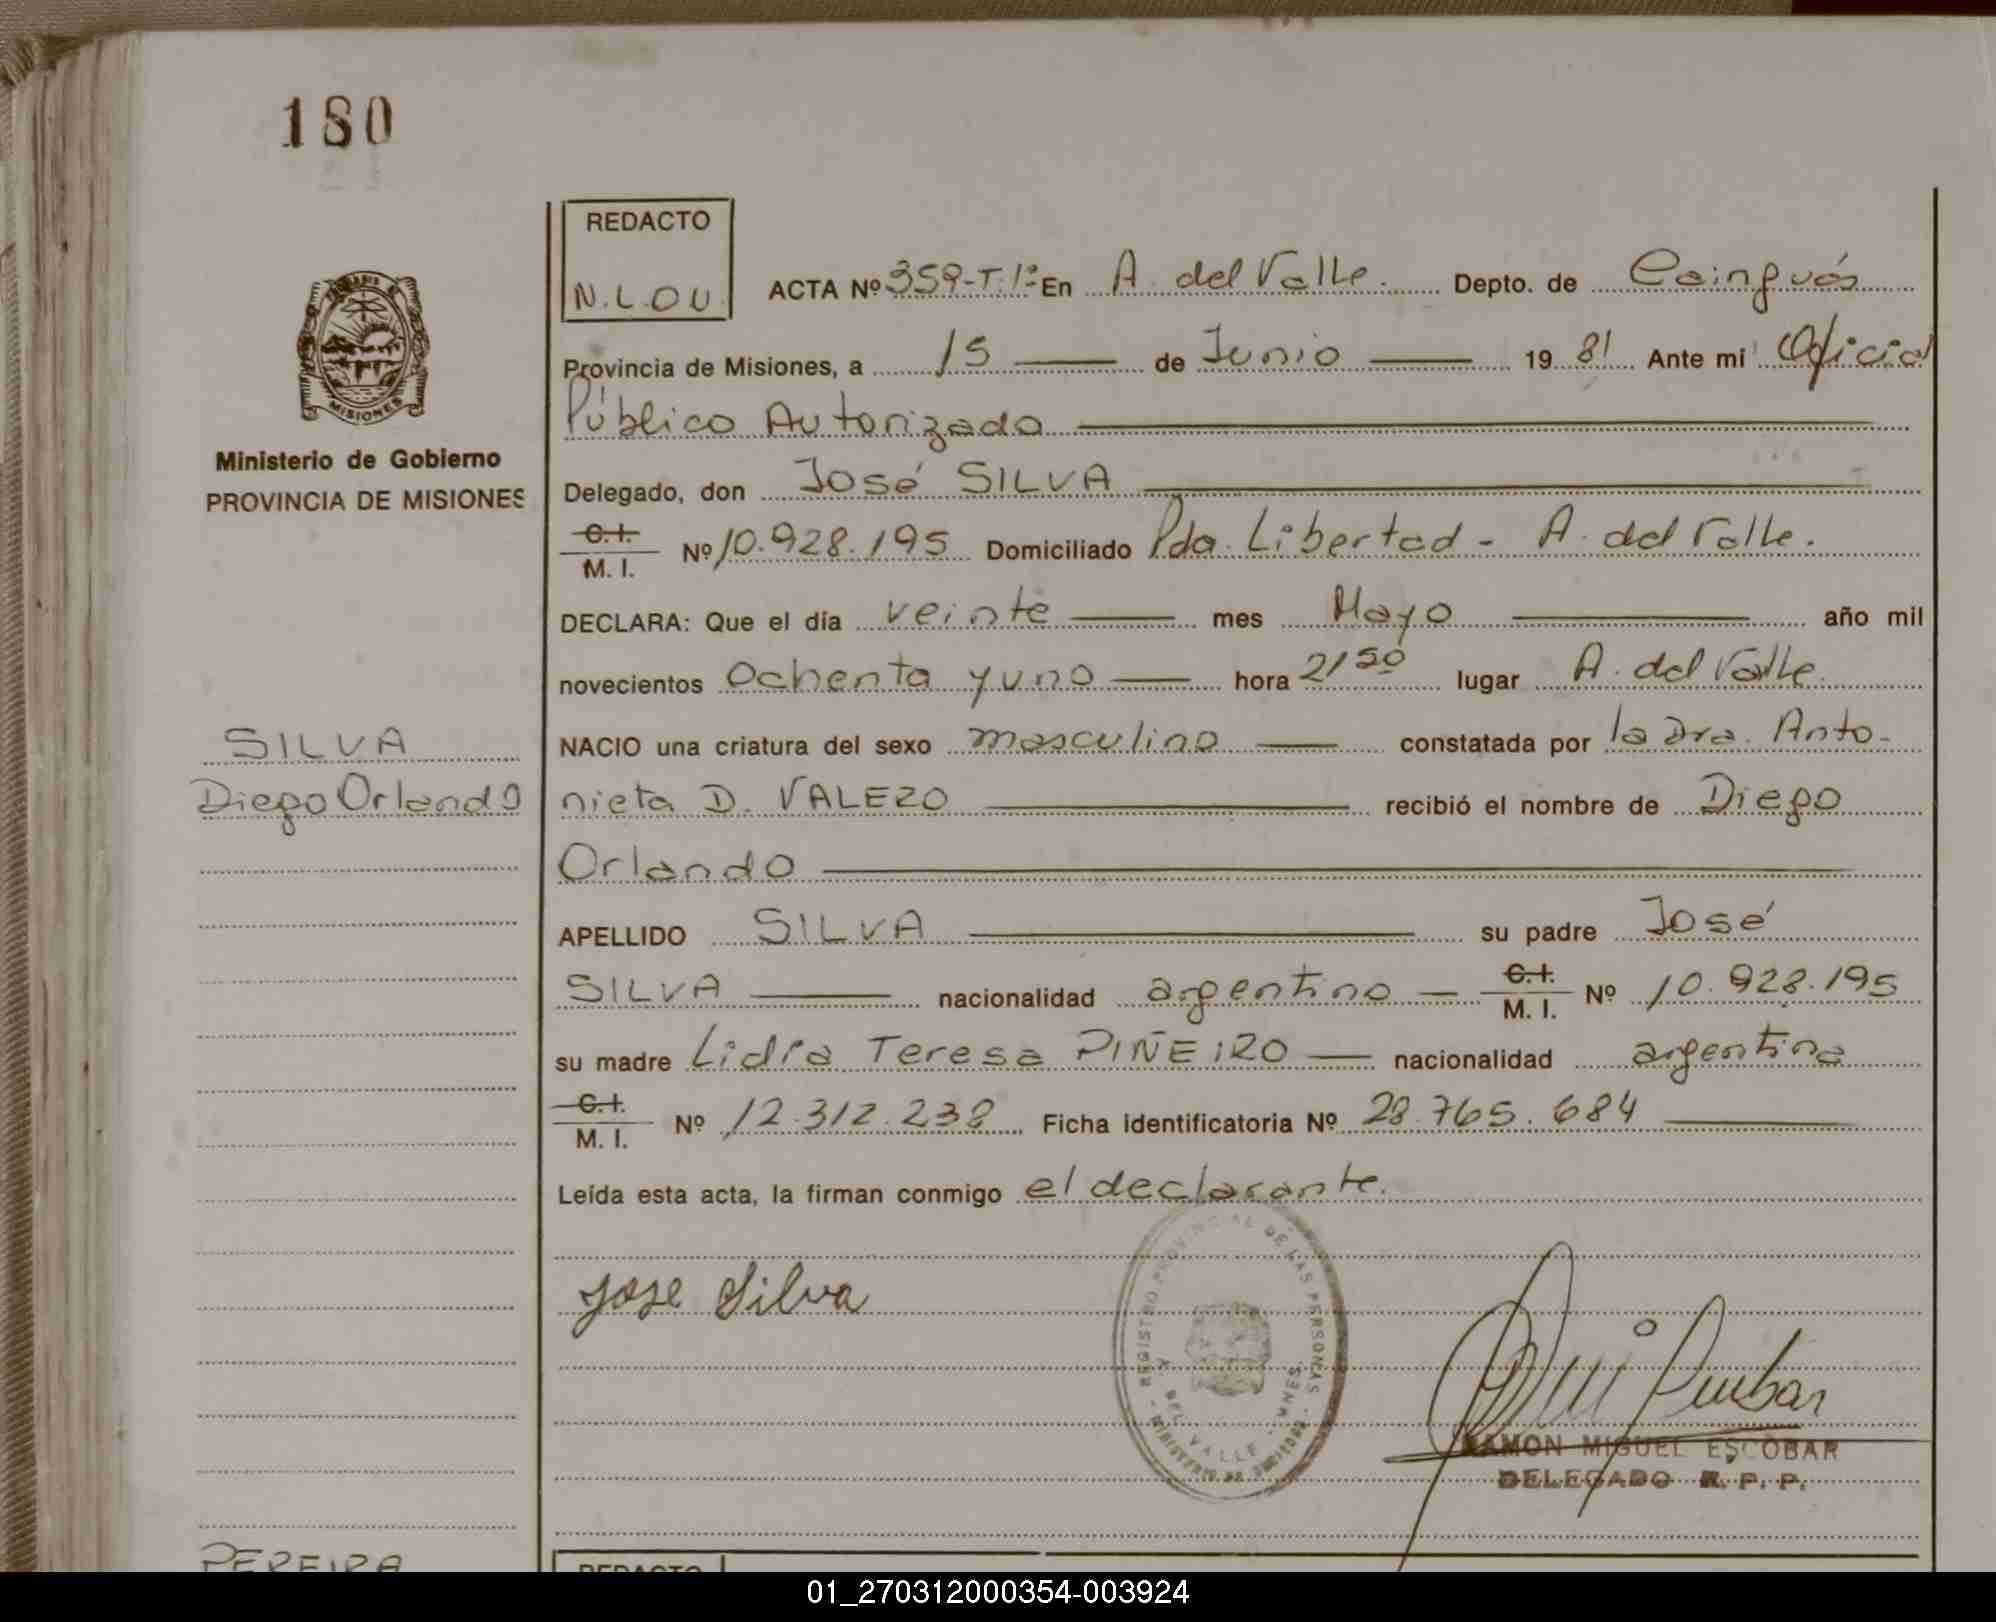 180
REDACTO
N.L.OU.
ACTA Nº 359-T.1º En A. del Valle. Depto. de Cainguás
Provincia de Misiones, a 15 de Junio 1981 Ante mi Oficial
Público Autorizado
Ministerio de Gobierno
PROVINCIA DE MISIONES
Delegado, don José SILVA
C.I. M.I. Nº 10.928.195 Domiciliado Pda. Libertad - A. del Valle.
DECLARA: Que el día veinte mes Mayo año mil
novecientos Ochenta y uno hora 2150 lugar A. del Valle.
SILVA
Diego Orlando
NACIO una criatura del sexo masculino constatada por la Dra. Anto-
nieta D. VALEZO recibió el nombre de Diego
Orlando
APELLIDO SILVA su padre José
SILVA nacionalidad argentino C.I. M.I. Nº 10.928.195
su madre Lidia Teresa PIÑEIRO nacionalidad argentina
C.I. M.I. Nº 12.312.238 Ficha identificatoria Nº 28.765.684
Leída esta acta, la firman conmigo el declarante.
Jose Silva
REGISTRO PROVINCIAL DE LAS PERSONAS
A. DEL VALLE - MNES.
MISIONES
RAMON MIGUEL ESCOBAR
DELEGADO R. P. P.
PEREIRA
REDACTO
01_270312000354-003924